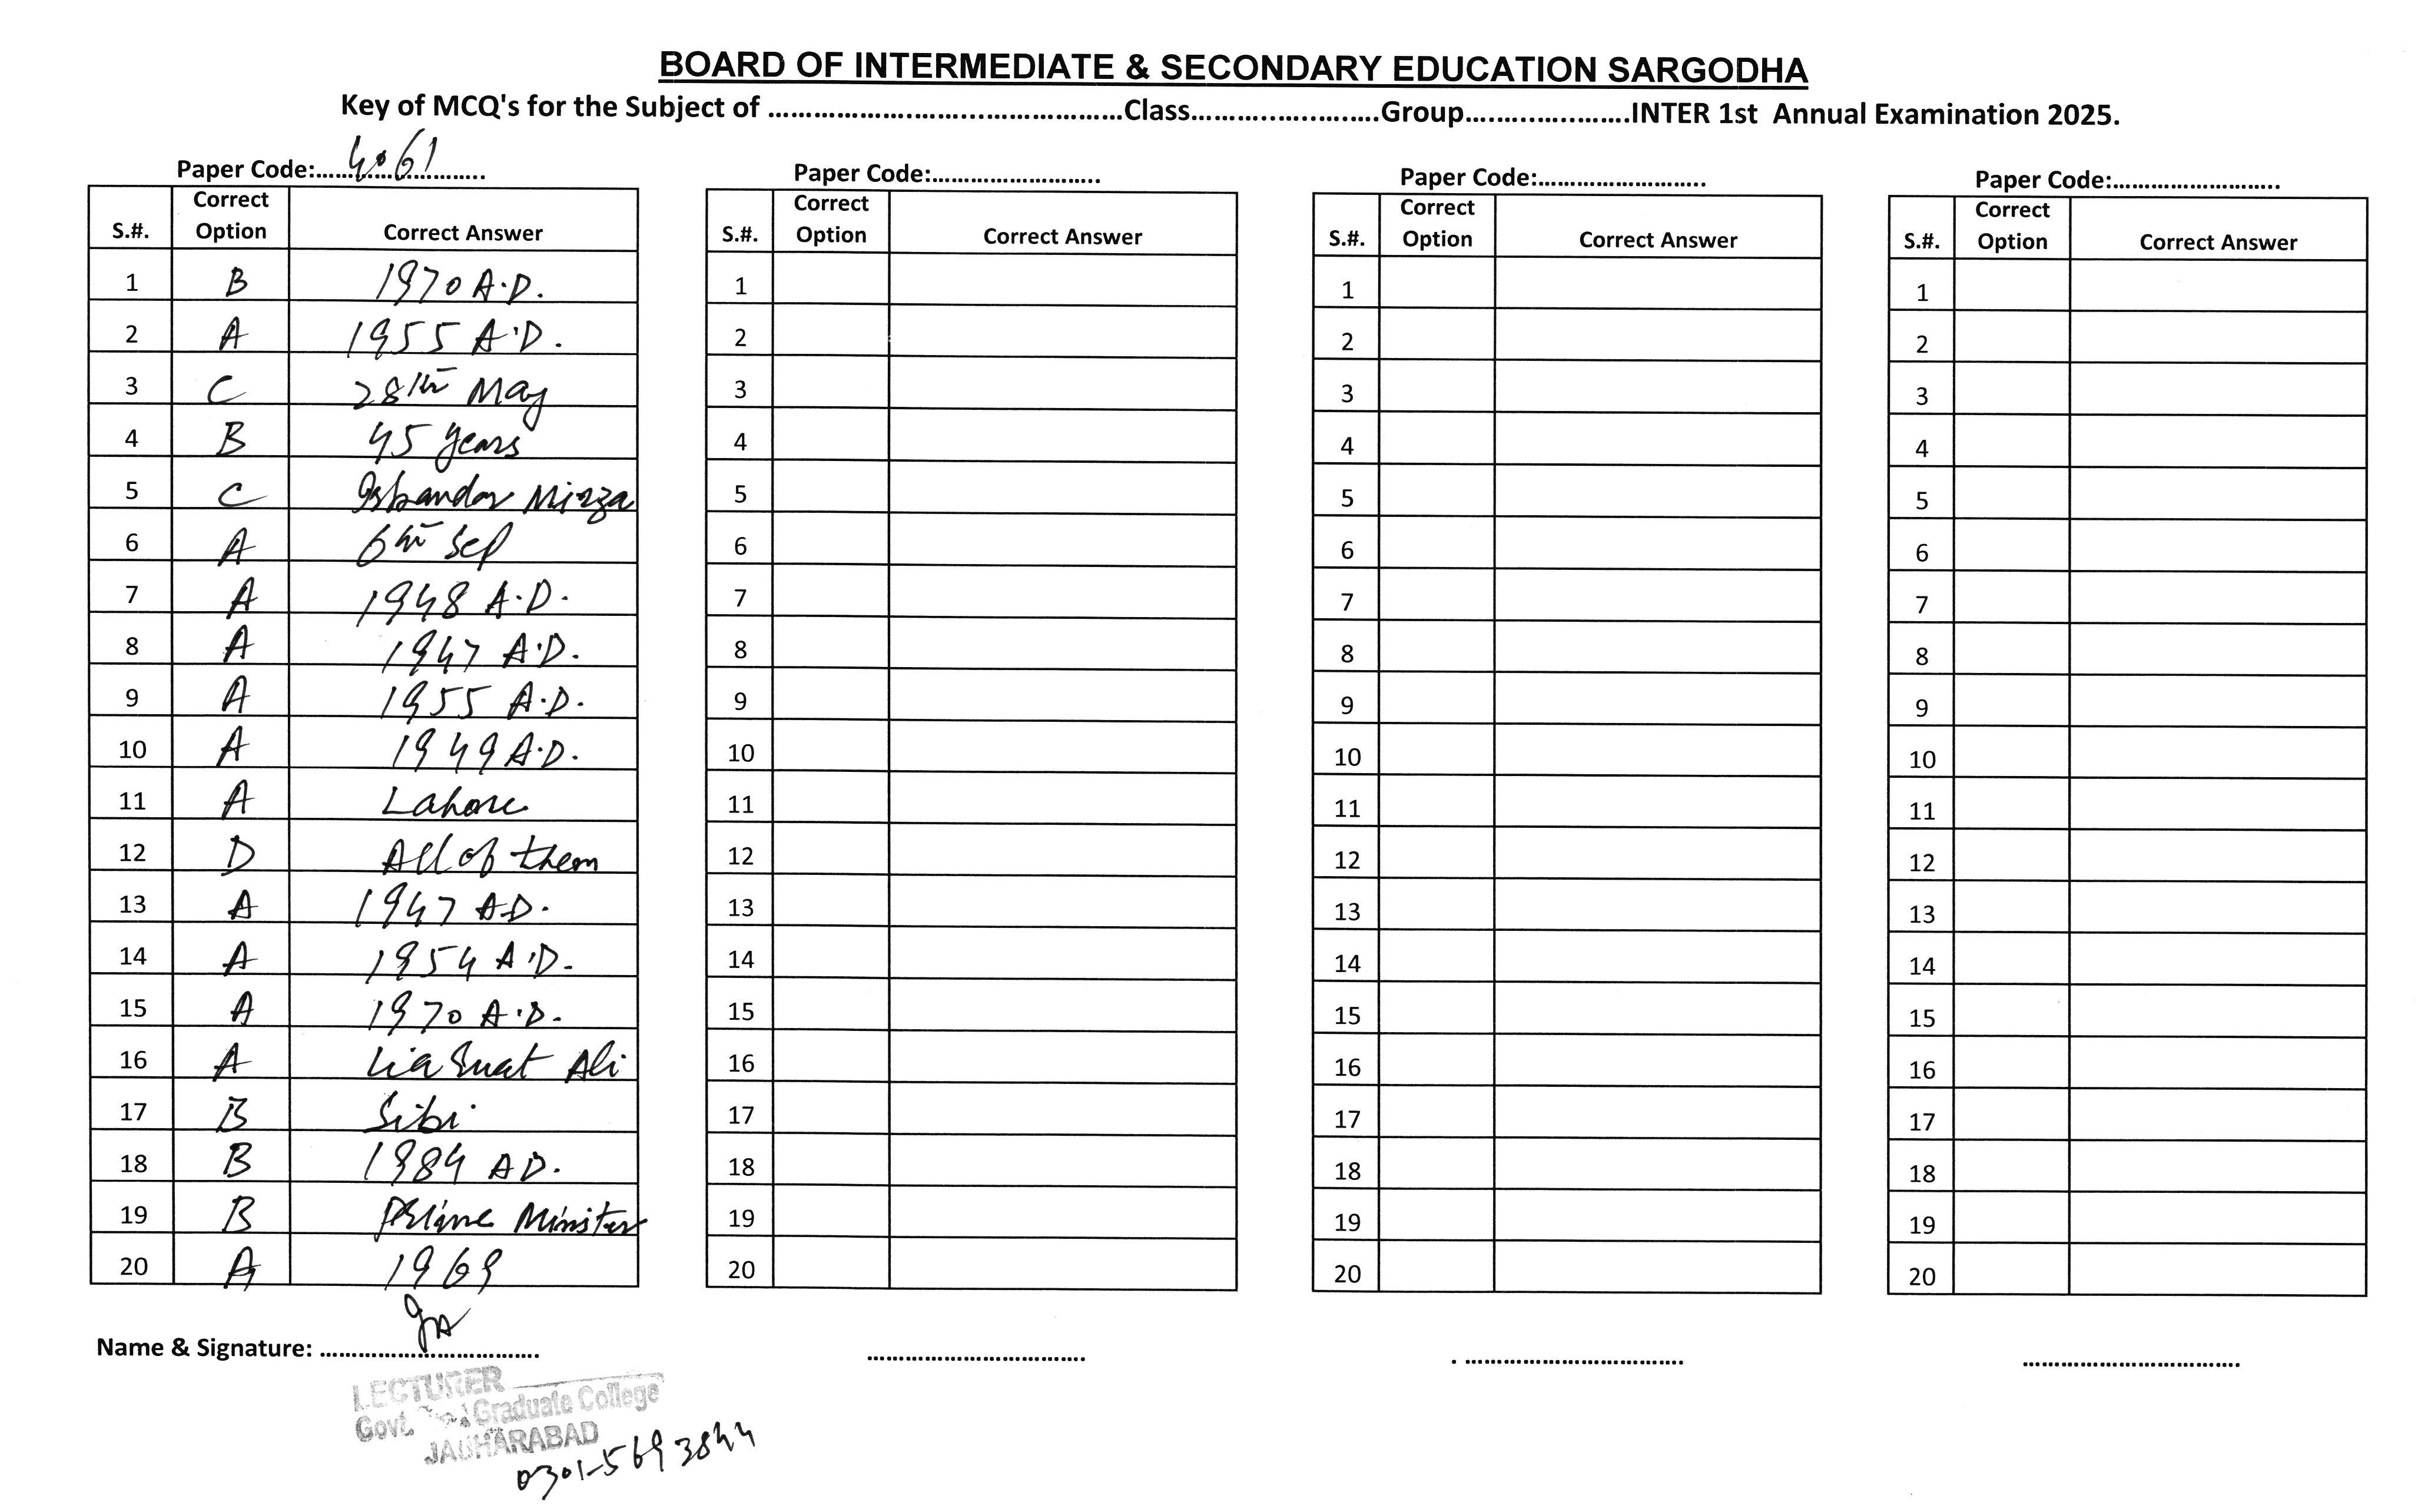 BOARD OF INTERMEDIATE & SECONDARY EDUCATION SARGODHA
Key of MCQ's for the Subject of ........................................Class........................Group.....................INTER 1st Annual Examination 2025.
Paper Code:....4061....
S.#. Correct Option Correct Answer
1 B 1970 A.D.
2 A 1955 A.D.
3 C 28th May
4 B 45 years
5 C Iskandar Mirza
6 A 6th Sep
7 A 1948 A.D.
8 A 1947 A.D.
9 A 1955 A.D.
10 A 1949 A.D.
11 A Lahore
12 D All of them
13 A 1947 A.D.
14 A 1954 A.D.
15 A 1970 A.D.
16 A Liaquat Ali
17 B Sibi
18 B 1984 A.D.
19 B Prime Minister
20 A 1969
Name & Signature: ..............................
LECTURER
Govt. Graduate College
JAUHARABAD
0301-5693844
Paper Code:..........................
S.#. Correct Option Correct Answer
1
2
3
4
5
6
7
8
9
10
11
12
13
14
15
16
17
18
19
20
..............................
Paper Code:..........................
S.#. Correct Option Correct Answer
1
2
3
4
5
6
7
8
9
10
11
12
13
14
15
16
17
18
19
20
. ..............................
Paper Code:..........................
S.#. Correct Option Correct Answer
1
2
3
4
5
6
7
8
9
10
11
12
13
14
15
16
17
18
19
20
..............................